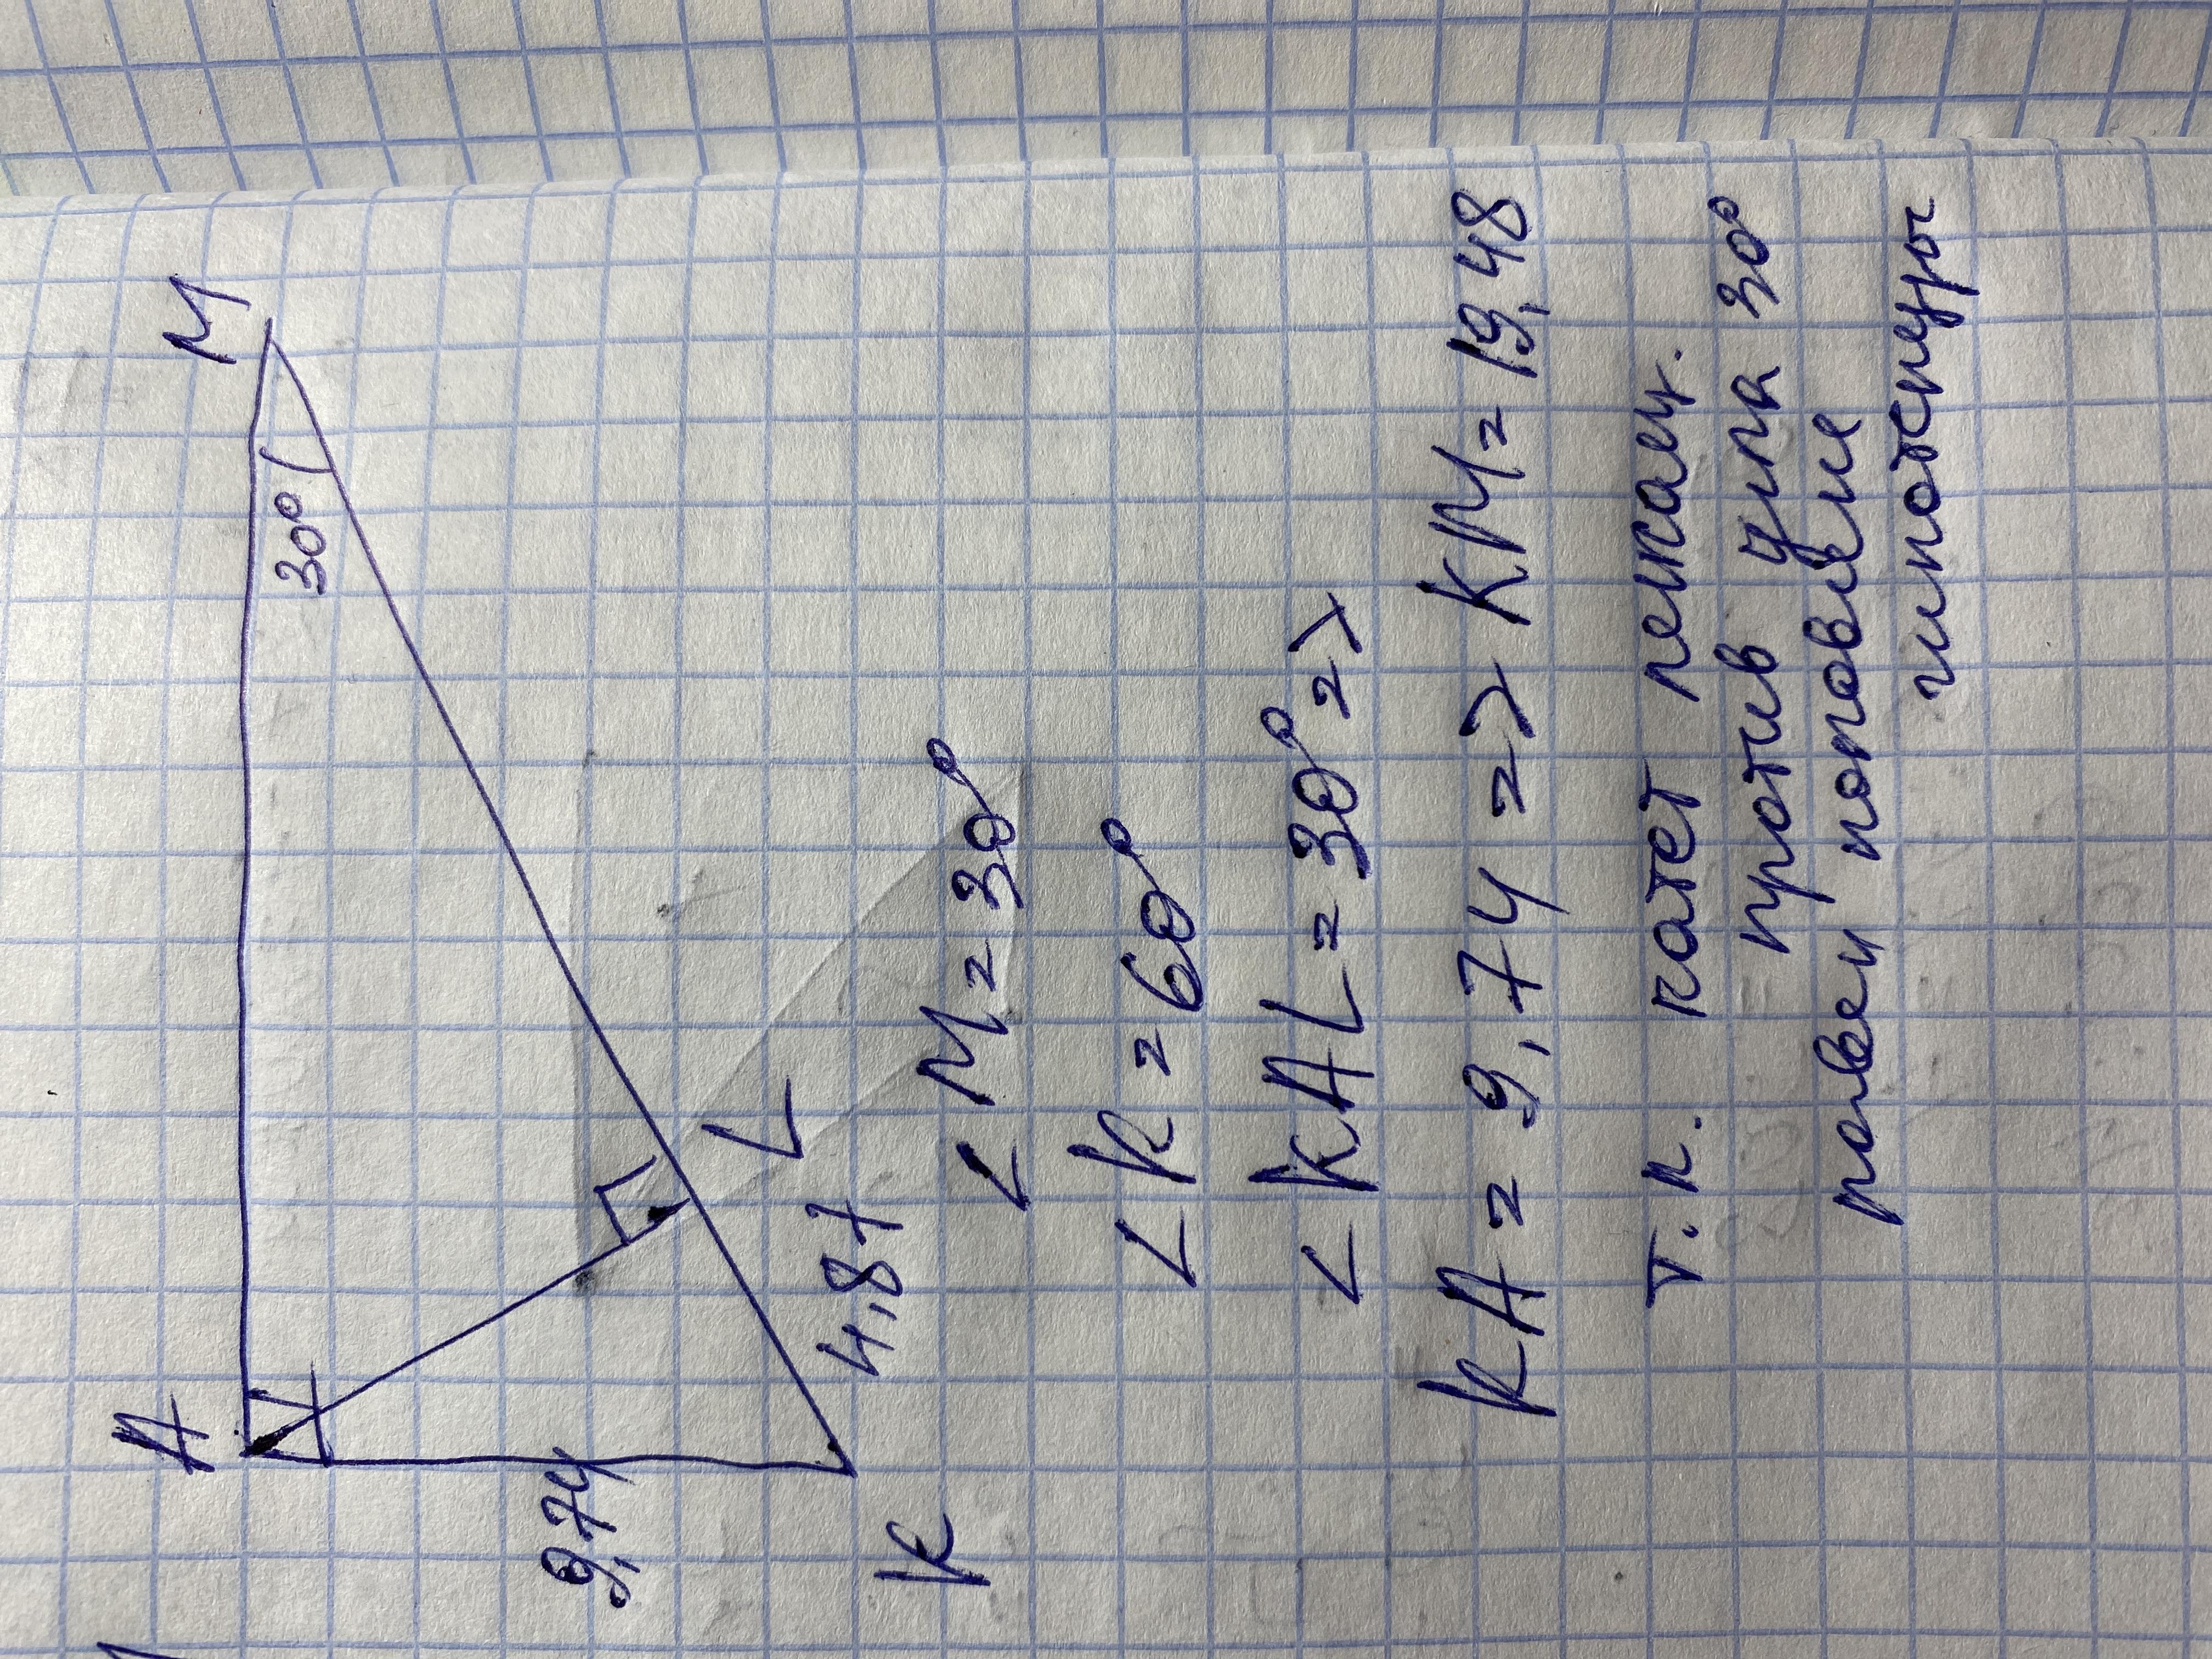 A
M
30°
9,74
L
K
4,87
< M = 30°
< K = 60°
< KAL = 30° =>
KA = 9,74 => KM = 19,48
т.к. катет лежащ.
против угла 30°
равен половине
гипотенузы